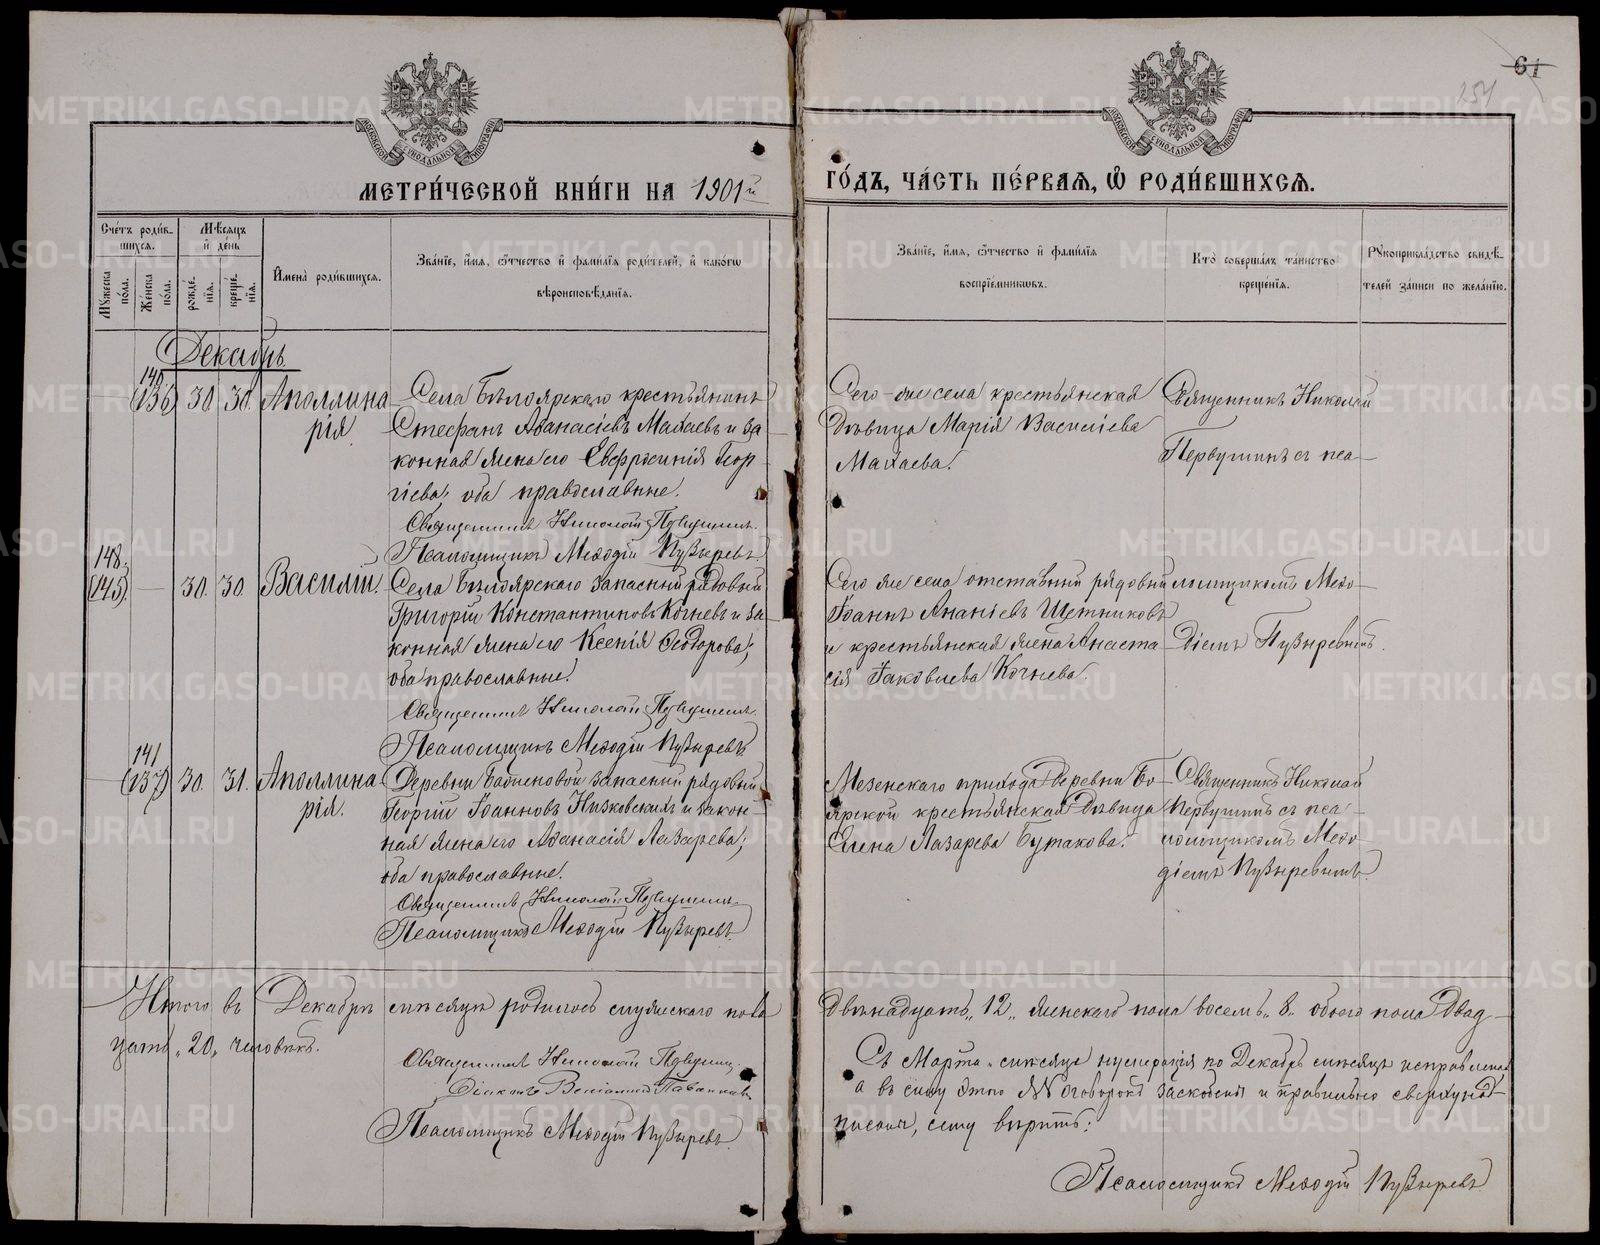 61
154
МЕТРИ́ЧЕСКОЙ КНИ́ГИ НА 1901й
ГО́ДЪ, ЧА́СТЬ ПЕ́РВАѦ, Ѽ РОДИ́ВШИХСѦ.
Сче́тъ роди́в-
шихсѧ.
Мꙋжеска по́ла.
Же́нска по́ла.
Мѣ́сѧцъ и҆ де́нь
рожде́нїѧ.
креще́нїѧ.
И҆мена̀ роди́вшихсѧ.
Зва́нїе, и҆́мѧ, ѻ҆́тчество и҆ фамі́лїѧ роди́телей, и҆ како́гѡ
вѣроисповѣ́данїѧ.
Зва́нїе, и҆́мѧ, ѻ҆́тчество и҆ фамі́лїѧ
воспрїе́мникѡвъ.
Кто̀ соверша́лъ та́инство
креще́нїѧ.
Рꙋкоприкла́дство свидѣ́-
телей за́писи по жела́нїю.
Декабрь
140.
(136) 30 30. Аполлина
рія.
Села Бѣлоярскаго крестьянинъ
Стефанъ Аѳанасіевъ Махаевъ и за
конная жена его Евфросинія Геор
гіева; оба православные.
Священникъ Николай Первушинъ.
Псаломщикъ Меѳодій Пузыревъ
Сего-же села крестьянская
дѣвица Марія Василіева
Махаева.
Священникъ Николай
Первушинъ съ пса-
148.
(145) — 30. 30. Василій.
Села Бѣлоярскаго запасный рядовый
Григорій Константиновъ Кочневъ и за
конная жена его Ксенія Ѳеодорова;
оба православные.
Священникъ Николай Первушинъ.
Псаломщикъ Меѳодій Пузыревъ
Сего же села отставный рядовый
Іоаннъ Ананіевъ Щетниковъ
и крестьянская жена Анаста
сія Іаковлева Кочнева.
ломщикомъ Меѳо-
діемъ Пузыревымъ.
141
(137) 30. 31. Аполлина
рія.
Деревни Бабиновой запасный рядовый
Георгій Іоанновъ Низковскихъ и закон-
ная жена его Аѳанасія Лазарева;
оба православные.
Священникъ Николай Первушинъ.
Псаломщикъ Меѳодій Пузыревъ
Мезенскаго прихода деревни Бо
ярской крестьянская дѣвица
Елена Лазарева Бутакова.
Священникъ Николай
Первушинъ съ пса-
ломщикомъ Меѳо-
діемъ Пузыревымъ.
Итого въ Декабрѣ мѣсяцѣ родилось мужескаго пола
двѣнадцать „12„ женскаго пола восемь „8„ обоего пола двад-
цать „20„ человѣкъ.
Священникъ Николай Первушинъ.
Діаконъ Веніаминъ
Псаломщикъ Меѳодій Пузыревъ
Съ Марта мѣсяца нумерація по Декабрь мѣсяцъ исправлена
а въ силу этого №№ оговорокъ заскоблены и правильно сверху над-
писаны, сему вѣрить:
Псаломщикъ Меѳодій Пузыревъ